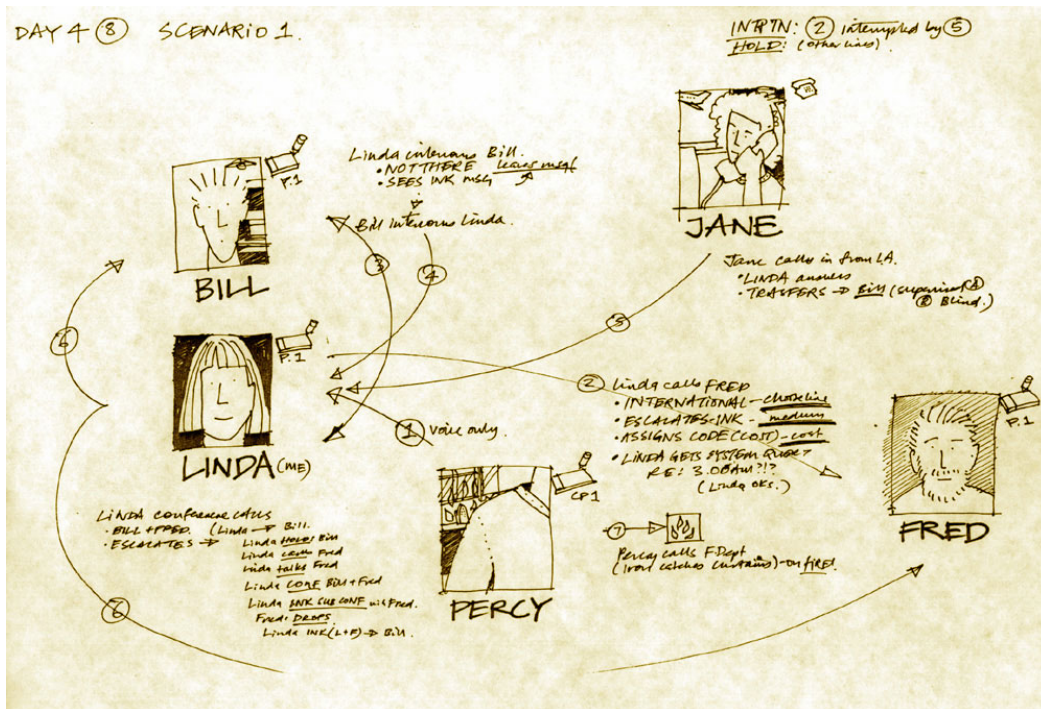 DAY 4 ⑧ SCENARIO 1.
INTPTN: ② interrupted by ⑤
HOLD: (other lines)
Linda intercoms Bill.
• NOT THERE leaves msg
• SEES INK MSG
Bill intercoms Linda.
P.1
BILL
JANE
Jane calls in from LA.
• LINDA answers
• TRASFERS → Bill (supervised Ⓐ
Ⓑ Blind.)
③
④
⑤
⑥
P.1
LINDA (ME)
① voice only.
② Linda calls FRED
• INTERNATIONAL - choose line
• ESCALATES - INK - medium
• ASSIGNS CODE (COST) - cost
• LINDA GETS SYSTEM QUERY
RE: 3.00AM?!?
(Linda OKs.)
P.1
FRED
CP1
PERCY
⑦
Percy calls F.Dept
(Iron catches curtains) - on fire.
LINDA conference calls
• BILL + FRED. (Linda → Bill.
• ESCALATES → Linda HOLDS Bill
Linda calls Fred
Linda talks Fred
Linda CONF Bill + Fred
Linda INK SUB CONF with Fred.
Fred: DROPS
Linda INK (L+F) → Bill.
⑥